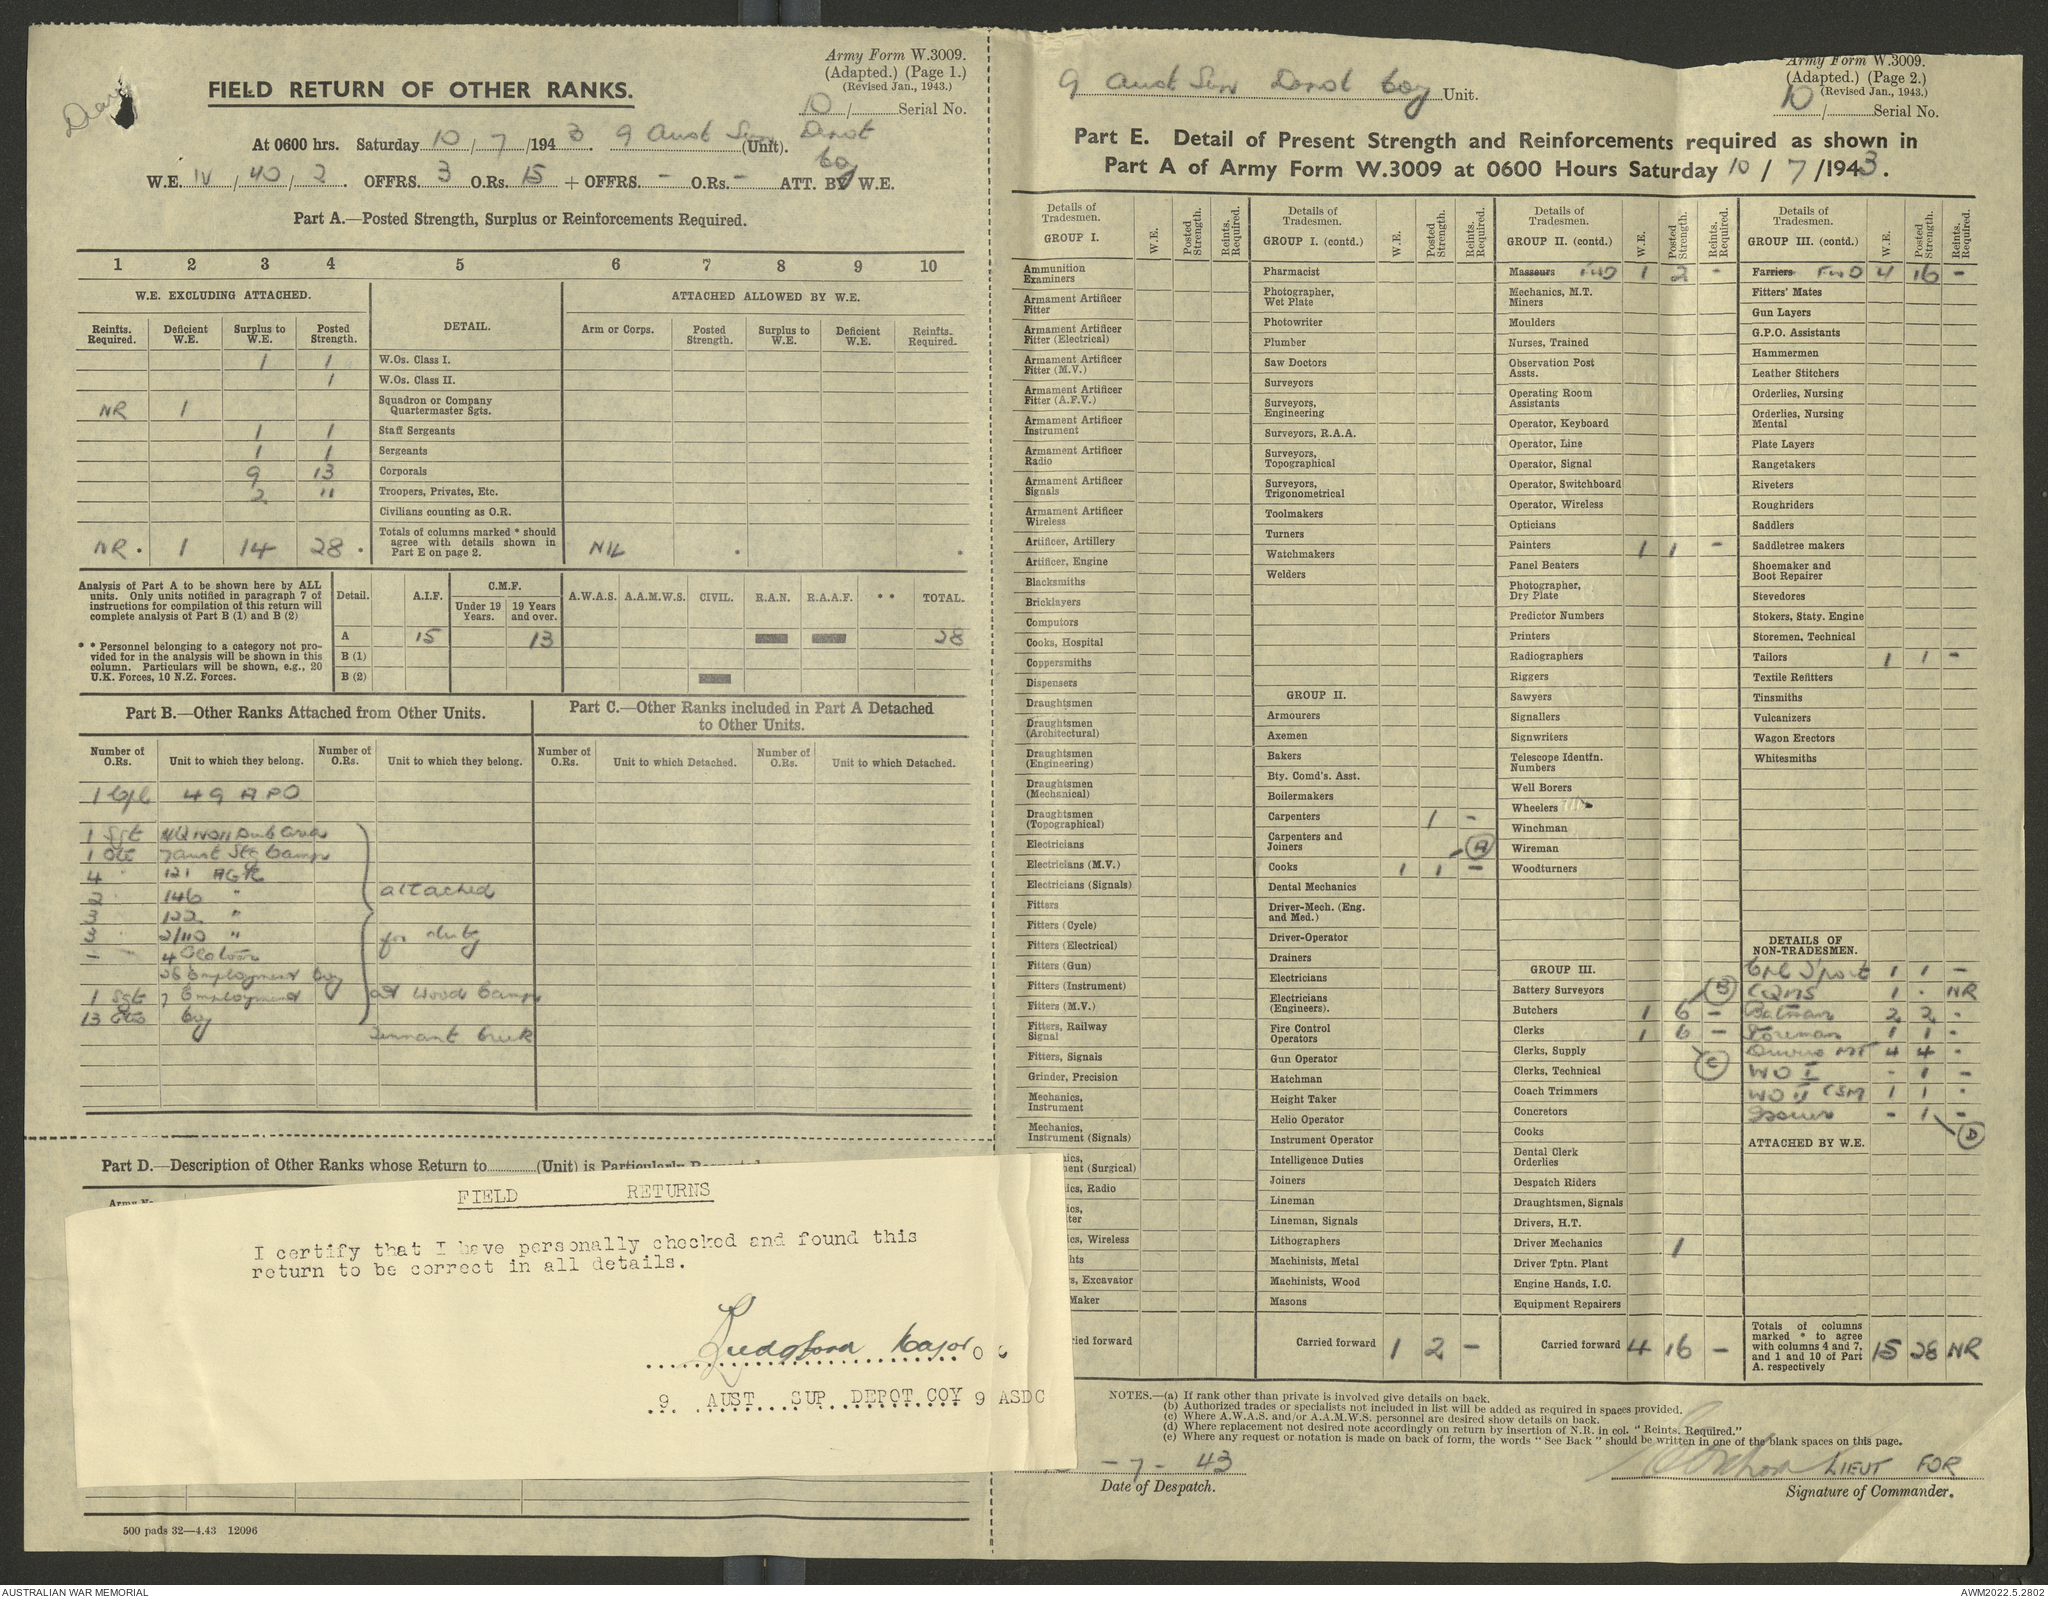 Army Form W.3009.
(Adapted.) (Page 1.)
(Revised Jan., 1943.)
10/ Serial No.
FIELD RETURN OF OTHER RANKS.
At 0600 hrs. Saturday 10/7/1943. 9 Aust Sup Depot Coy (Unit).
W.E. IV/40/2. OFFRS. 3 O.Rs. 15 + OFFRS. - O.Rs. - ATT. BY W.E.
Part A.—Posted Strength, Surplus or Reinforcements Required.
1 2 3 4 5 6 7 8 9 10
W.E. EXCLUDING ATTACHED. DETAIL. ATTACHED ALLOWED BY W.E.
Reinfts. Required. Deficient W.E. Surplus to W.E. Posted Strength. Arm or Corps. Posted Strength. Surplus to W.E. Deficient W.E. Reinfts. Required.
1 1 W.Os. Class I.
1 W.Os. Class II.
NR 1 Squadron or Company Quartermaster Sgts.
1 1 Staff Sergeants
1 1 Sergeants
9 13 Corporals
2 11 Troopers, Privates, Etc.
Civilians counting as O.R.
NR. 1 14 28. Totals of columns marked * should agree with details shown in Part E on page 2. NIL
Analysis of Part A to be shown here by ALL units. Only units notified in paragraph 7 of instructions for compilation of this return will complete analysis of Part B (1) and B (2)
* * Personnel belonging to a category not provided for in the analysis will be shown in this column. Particulars will be shown, e.g., 20 U.K. Forces, 10 N.Z. Forces.
Detail. A.I.F. C.M.F. Under 19 Years. 19 Years and over. A.W.A.S. A.A.M.W.S. CIVIL. R.A.N. R.A.A.F. * * TOTAL.
A 15 13 28
B (1)
B (2)
Part B.—Other Ranks Attached from Other Units.
Part C.—Other Ranks included in Part A Detached to Other Units.
Number of O.Rs. Unit to which they belong. Number of O.Rs. Unit to which they belong. Number of O.Rs. Unit to which Detached. Number of O.Rs. Unit to which Detached.
1 Cpl 49 APO
1 Sgt
1 Pte 7 Aust Stg Camp
4 121
2 146 " attached
3 122 "
3 2/110 " for duty
4 Platoon
26 Employment Coy
1 Sgt 7 Employment at Wood Camp
13 Ptes Coy
Tennant Creek
Part D.—Description of Other Ranks whose Return to (Unit) is Particularly Requested
Army No.
FIELD RETURNS
I certify that I have personally checked and found this
return to be correct in all details.
Major O C
9 AUST SUP DEPOT COY 9 ASDC
500 pads 32—4.43 12096
9 Aust Sup Depot Coy Unit.
Army Form W.3009.
(Adapted.) (Page 2.)
(Revised Jan., 1943.)
10/ Serial No.
Part E. Detail of Present Strength and Reinforcements required as shown in
Part A of Army Form W.3009 at 0600 Hours Saturday 10/7/1943.
Details of Tradesmen. GROUP I. W.E. Posted Strength. Reints. Required.
Ammunition Examiners
Armament Artificer Fitter
Armament Artificer Fitter (Electrical)
Armament Artificer Fitter (M.V.)
Armament Artificer Fitter (A.F.V.)
Armament Artificer Instrument
Armament Artificer Radio
Armament Artificer Signals
Armament Artificer Wireless
Artificer, Artillery
Artificer, Engine
Blacksmiths
Bricklayers
Computors
Cooks, Hospital
Coppersmiths
Dispensers
Draughtsmen
Draughtsmen (Architectural)
Draughtsmen (Engineering)
Draughtsmen (Mechanical)
Draughtsmen (Topographical)
Electricians
Electricians (M.V.)
Electricians (Signals)
Fitters
Fitters (Cycle)
Fitters (Electrical)
Fitters (Gun)
Fitters (Instrument)
Fitters (M.V.)
Fitters, Railway Signal
Fitters, Signals
Grinder, Precision
Mechanics, Instrument
Mechanics, Instrument (Signals)
ics, ent (Surgical)
ics, Radio
ics, iter
ics, Wireless
hts
rs, Excavator
Maker
ried forward
Details of Tradesmen. GROUP I. (contd.) W.E. Posted Strength. Reints. Required.
Pharmacist
Photographer, Wet Plate
Photowriter
Plumber
Saw Doctors
Surveyors
Surveyors, Engineering
Surveyors, R.A.A.
Surveyors, Topographical
Surveyors, Trigonometrical
Toolmakers
Turners
Watchmakers
Welders
GROUP II.
Armourers
Axemen
Bakers
Bty. Comd's. Asst.
Boilermakers
Carpenters 1 -
Carpenters and Joiners (A)
Cooks 1 1 -
Dental Mechanics
Driver-Mech. (Eng. and Med.)
Driver-Operator
Drainers
Electricians
Electricians (Engineers).
Fire Control Operators
Gun Operator
Hatchman
Height Taker
Helio Operator
Instrument Operator
Intelligence Duties
Joiners
Lineman
Lineman, Signals
Lithographers
Machinists, Metal
Machinists, Wood
Masons
Carried forward 1 2 -
Details of Tradesmen. GROUP II. (contd.) W.E. Posted Strength. Reints. Required.
Masseurs FWD 1 2 -
Mechanics, M.T. Miners
Moulders
Nurses, Trained
Observation Post Assts.
Operating Room Assistants
Operator, Keyboard
Operator, Line
Operator, Signal
Operator, Switchboard
Operator, Wireless
Opticians
Painters 1 1 -
Panel Beaters
Photographer, Dry Plate
Predictor Numbers
Printers
Radiographers
Riggers
Sawyers
Signallers
Signwriters
Telescope Identfn. Numbers
Well Borers
Wheelers
Winchman
Wireman
Woodturners
GROUP III.
Battery Surveyors (B)
Butchers 1 6 -
Clerks 1 6 -
Clerks, Supply (C)
Clerks, Technical
Coach Trimmers
Concretors
Cooks
Dental Clerk Orderlies
Despatch Riders
Draughtsmen, Signals
Drivers, H.T.
Driver Mechanics 1
Driver Tptn. Plant
Engine Hands, I.C.
Equipment Repairers
Carried forward 4 16 -
Details of Tradesmen. GROUP III. (contd.) W.E. Posted Strength. Reints. Required.
Farriers FwD 4 16 -
Fitters' Mates
Gun Layers
G.P.O. Assistants
Hammermen
Leather Stitchers
Orderlies, Nursing
Orderlies, Nursing Mental
Plate Layers
Rangetakers
Riveters
Roughriders
Saddlers
Saddletree makers
Shoemaker and Boot Repairer
Stevedores
Stokers, Staty. Engine
Storemen, Technical
Tailors 1 1 -
Textile Refitters
Tinsmiths
Vulcanizers
Wagon Erectors
Whitesmiths
DETAILS OF NON-TRADESMEN.
Cpl T'port 1 1 -
CQMS 1 . NR
Batman 2 2 -
Storeman 1 1 -
Drivers MT 4 4 -
WO I - 1 -
WO II CSM 1 1 .
Issuer - 1 - (D)
ATTACHED BY W.E.
Totals of columns marked * to agree with columns 4 and 7, and 1 and 10 of Part A. respectively 15 28 NR
NOTES.—(a) If rank other than private is involved give details on back.
(b) Authorized trades or specialists not included in list will be added as required in spaces provided.
(c) Where A.W.A.S. and/or A.A.M.W.S. personnel are desired show details on back.
(d) Where replacement not desired note accordingly on return by insertion of N.R. in col. "Reints. Required."
(e) Where any request or notation is made on back of form, the words "See Back" should be written in one of the blank spaces on this page.
-7-43
Date of Despatch.
LIEUT FOR
Signature of Commander.
AUSTRALIAN WAR MEMORIAL
AWM2022.5.2802